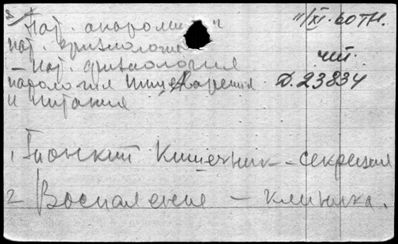 Пат. анатомия"
Пат. физиология
Пат. физиология
патология пищеварения
и питания
11/XI.60тн.
чит.
Д.23834
1 Тонкий Кишечник – секреция
2 Воспаление – клиника.